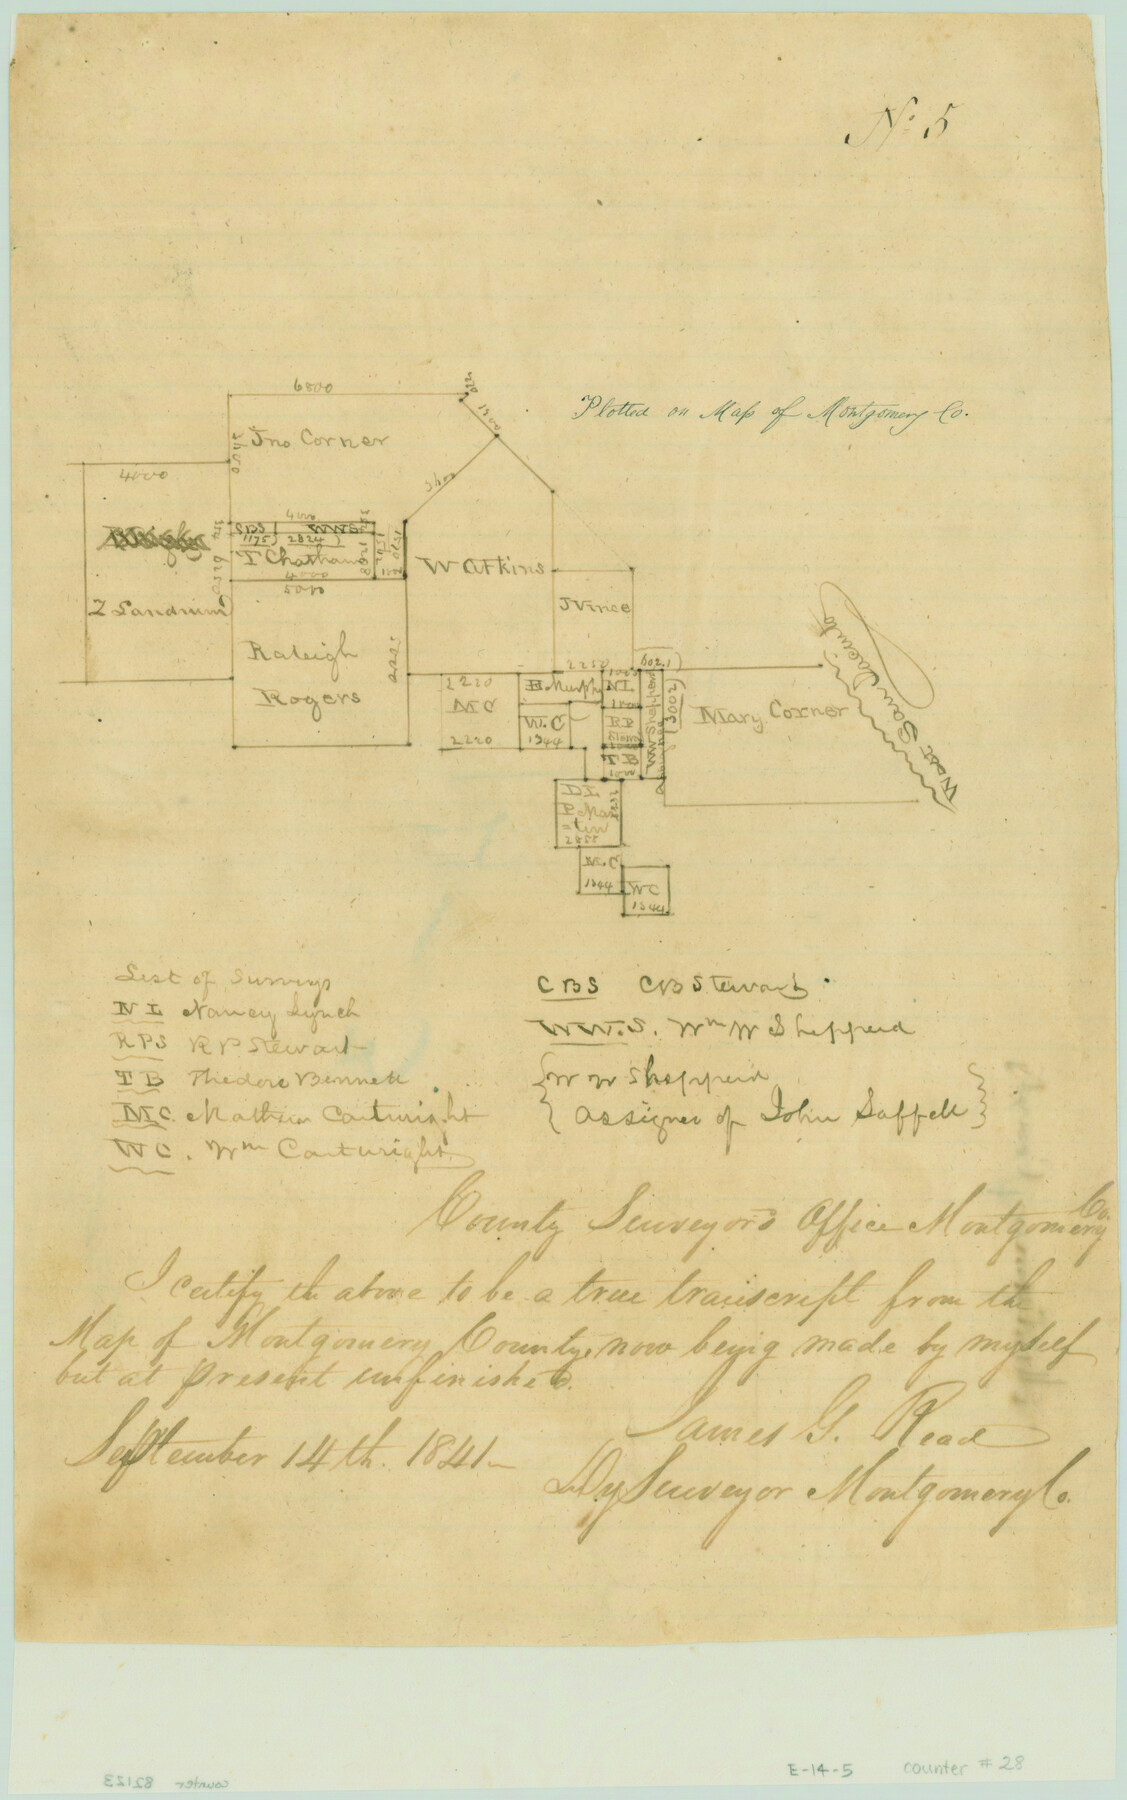 No. 5
6800
1200
Plotted on Map of Montgomery Co.
Jno Corner
4000
4000
CBS WWS
1175 2824
T Chatham
4000
5000
W Atkins
J Vince
Z Landrum
Raleigh
Rogers
2250
2220
MC
2220
H. Murphy
NL
W.C
1344
RP
TB
1000
WW Shepperd
Mary Corner
West San Jacinto
DL
P. Mar
=tin
W.C
1344
WC
1344
List of Surveys
NL Nancy Lynch
RPS R P Stewart
TB Thedore Bennett
MC. Mathew Cartwright
WC. Wm Cartwright
CBS CB Stewart
WW.S. Wm W Shepperd
W W Shepperd
assignee of John Saffell
County Surveyors Office Montgomery Co.
I certify the above to be a true transcript from the
Map of Montgomery County, now being made by myself
but at present unfinished.
September 14th. 1841
James G. Read
Dy Surveyor Montgomery Co.
counter 82123
E-14-5 counter # 28